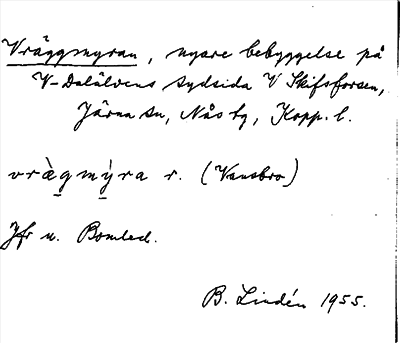 Vräggmyran, nyare bebyggelse på
V-Dalälvens sydsida V Skifsforsen,
Järna sn, Nås tg, Kopp. l.
vrægmýra r. (Vansbro)
Jfr u. Bomled.
B. Lindén 1955.